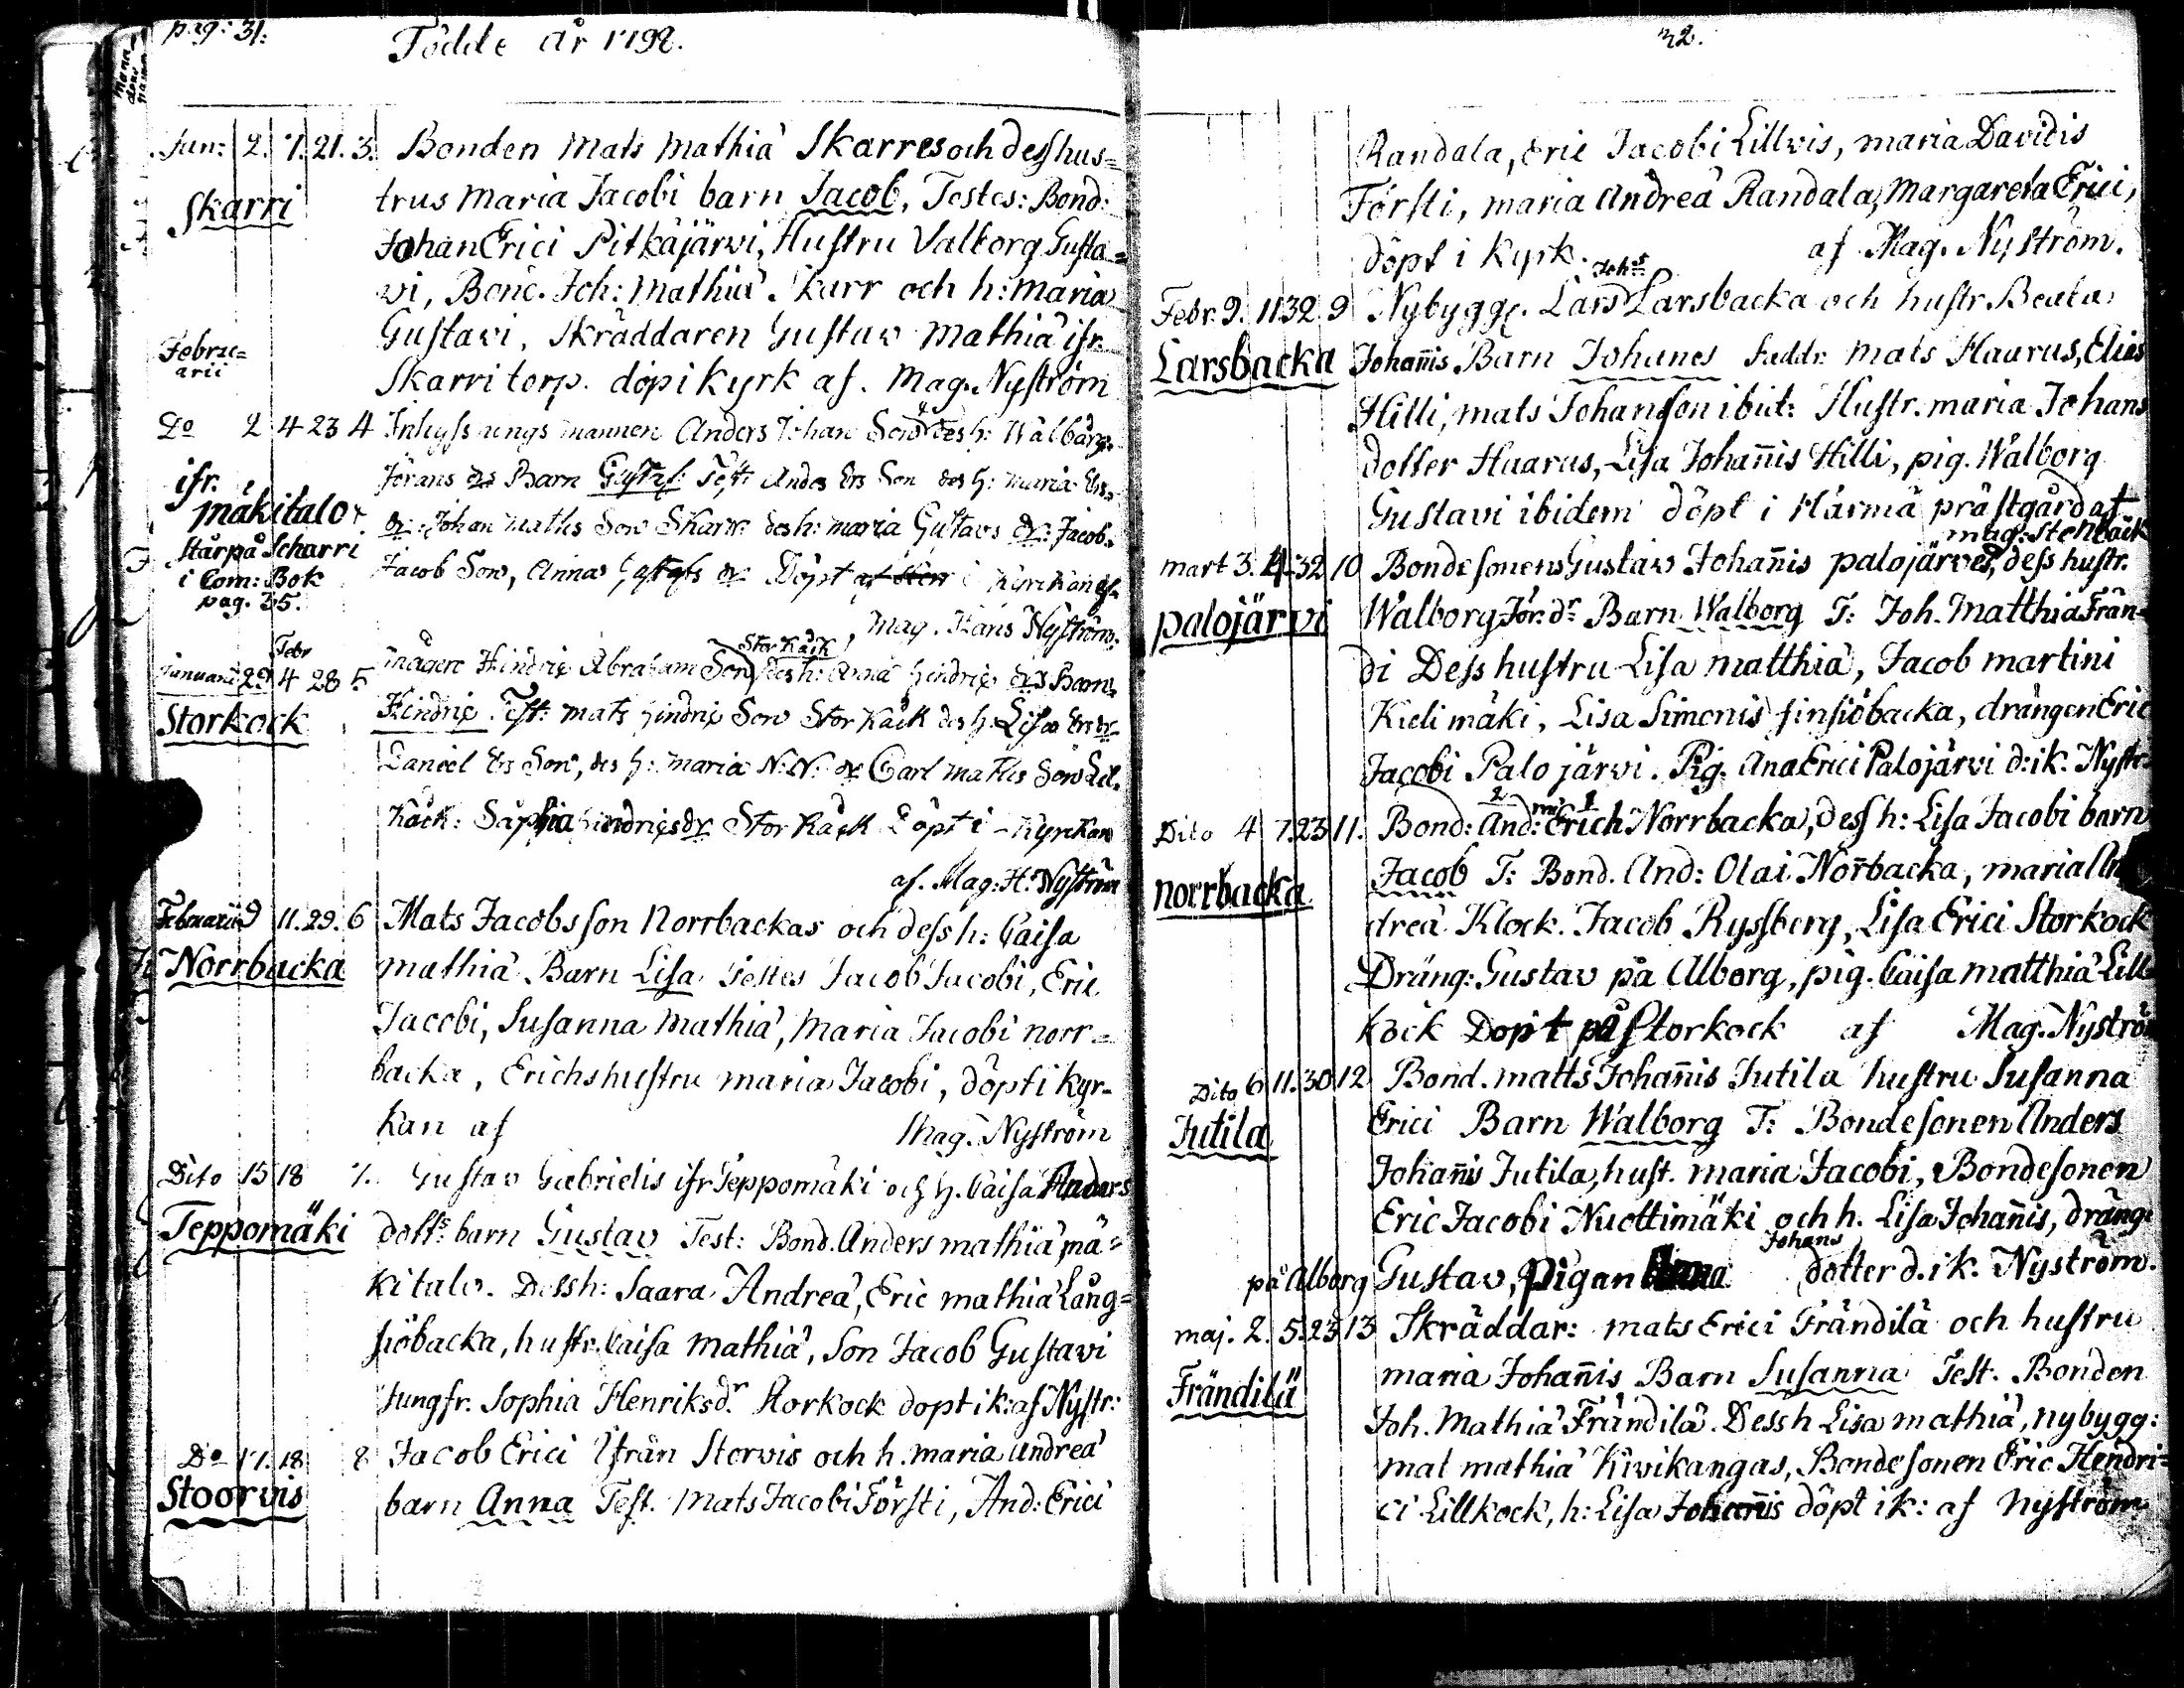 pag: 31.
Födde år 1798.
Jan: 2. 7. 21. 3. Bonden Mats Mathiæ Skarres och dess hus=
Skarri trus Maria Jacobi barn Jacob, Testes: Bond:
Johan Erici Pitkäjärvi, Hustru Valborg Gusta=
vi, Bond. Joh: Mathiæ Skarr och h: Maria
Gustavi, Skräddaren Gustav Mathiæ ifr.
Febru=
arii
Skarri torp. döpt i kyrk af. Mag. Nyström
Do 2 4 23 4 Inhyssings mannen Anders Johan Son des h: Walbårg
ifr.
mäkitalo
Jörans dr Barn Gustaf Test: Andes Ers Son des h: Maria Ers
dr: Johan Mathis Son Skarr des h: Maria Gustavs dr: Jacob
står på Scharri
i Com: Bok
pag. 35.
Jacob Son, Anna dr Döpt i kyrckan af
Mag. Hans Nyström.
Febr
Januarii 29 4 28 5 Hindrix Abraham Son Storkåck des h: Anna Hindrix drs Barn
Storkock Hindrix Test: Mats Hindrix Son Storkåck des h. Lisa Ers dr
Daniel Ers Son, des h: Maria N: N: dr Carl Mathis Son Lil.
kåck: Saphia Hindrixs dr Storkåck Döpt i Kyrckan
af. Mag: H: Nyström
Februarii 9 11. 29. 6 Mats Jacobsson Norrbackas och dess h: Caisa
Norrbacka mathiæ Barn Lisa Testes Jacob Jacobi, Eric
Jacobi, Susanna Mathiæ, Maria Jacobi norr=
backa, Erichs hustru maria Jacobi, döpt i kyr=
kan af Mag. Nyström
Dito 15 18 7. Gustav Gabrielis ifr Teppomäki och h. Caisa Anders
Teppomäki dotts barn Gustav Test: Bond. Anders mathiæ mä=
kitalo. Dess h: Saara Andreæ, Eric mathiæ Lång=
siöbacka, hustr. Caisa Mathiæ, Son Jacob Gustavi
Jungfr. Sophia Henriks dr Storkock döpt i k: af Nystr:
Do 17. 18 8 Jacob Erici ifrån Storvis och h. maria Andreæ
Stoorvis barn Anna Test. Mats Jacobi Försti, And: Erici
32.
Randala, Eric Jacobi Lillvis, maria Davidis
Försti, maria Andreæ Randala, Margareta Erici,
döpt i kyrk. af Mag. Nyström.
Febr. 9. 11 32. 9 Nybygg. Lars Johs Larsbacka och hustr. Beata
Larsbacka Johañis Barn Johanes faddr: Mats Haarus, Elias
Hilli, mats Johansson ibid: Hustr. maria Johans
dotter Haarus, Lisa Johañis Hilli, pig. Walborg
Gustavi ibidem döpt i Härmä prästgård af
mag: Stenbäck
mart 3. 4. 32 10 Bondesonens Gustav Johañis palojärves, dess hustr.
palojärvi Walborg Jör: dr Barn Walborg T: Joh. Matthiæ Frän=
di Dess hustru Lisa matthiæ, Jacob martini
Kielimäki, Lisa Simonis finsiöbacka, drängen Eric
Jacobi Palojärvi. Pig. Ana Erici Palojärvi d: i k. Nystr.
Dito 4 7. 23 11. Bond: And: Erich Norrbacka, dess h: Lisa Jacobi barn
norrbacka Jacob T: Bond. And: Olai Norrbacka, maria An
dreæ Klock. Jacob Ryssberg, Lisa Erici Storkock
Dräng: Gustav på Alborg, pig. Caisa matthiæ Lill
kock Döpt på Storkock af Mag. Nyström
Dito 6 11. 30 12 Bond. matts Johañis Jutila hustru Susanna
Jutila Erici Barn Walborg T: Bondesonen Anders
Johañis Jutila, hust. maria Jacobi, Bondesonen
Eric Jacobi Nuottimäki och h. Lisa Johañis, dräng
på Alborg Gustav, pigan Johans dotter d. i k. Nyström.
maj. 2. 5. 23 13 Skräddar: mats Erici Frändilä och hustru
Frändilä maria Johañis Barn Susanna Test. Bonden
Joh. Mathiæ Frändilä. Dess h Lisa mathiæ, nybygg:
mat mathiæ Kivikangas, Bondesonen Eric Hendri=
ci Lillkock, h: Lisa Johañis döpt i k: af Nyström